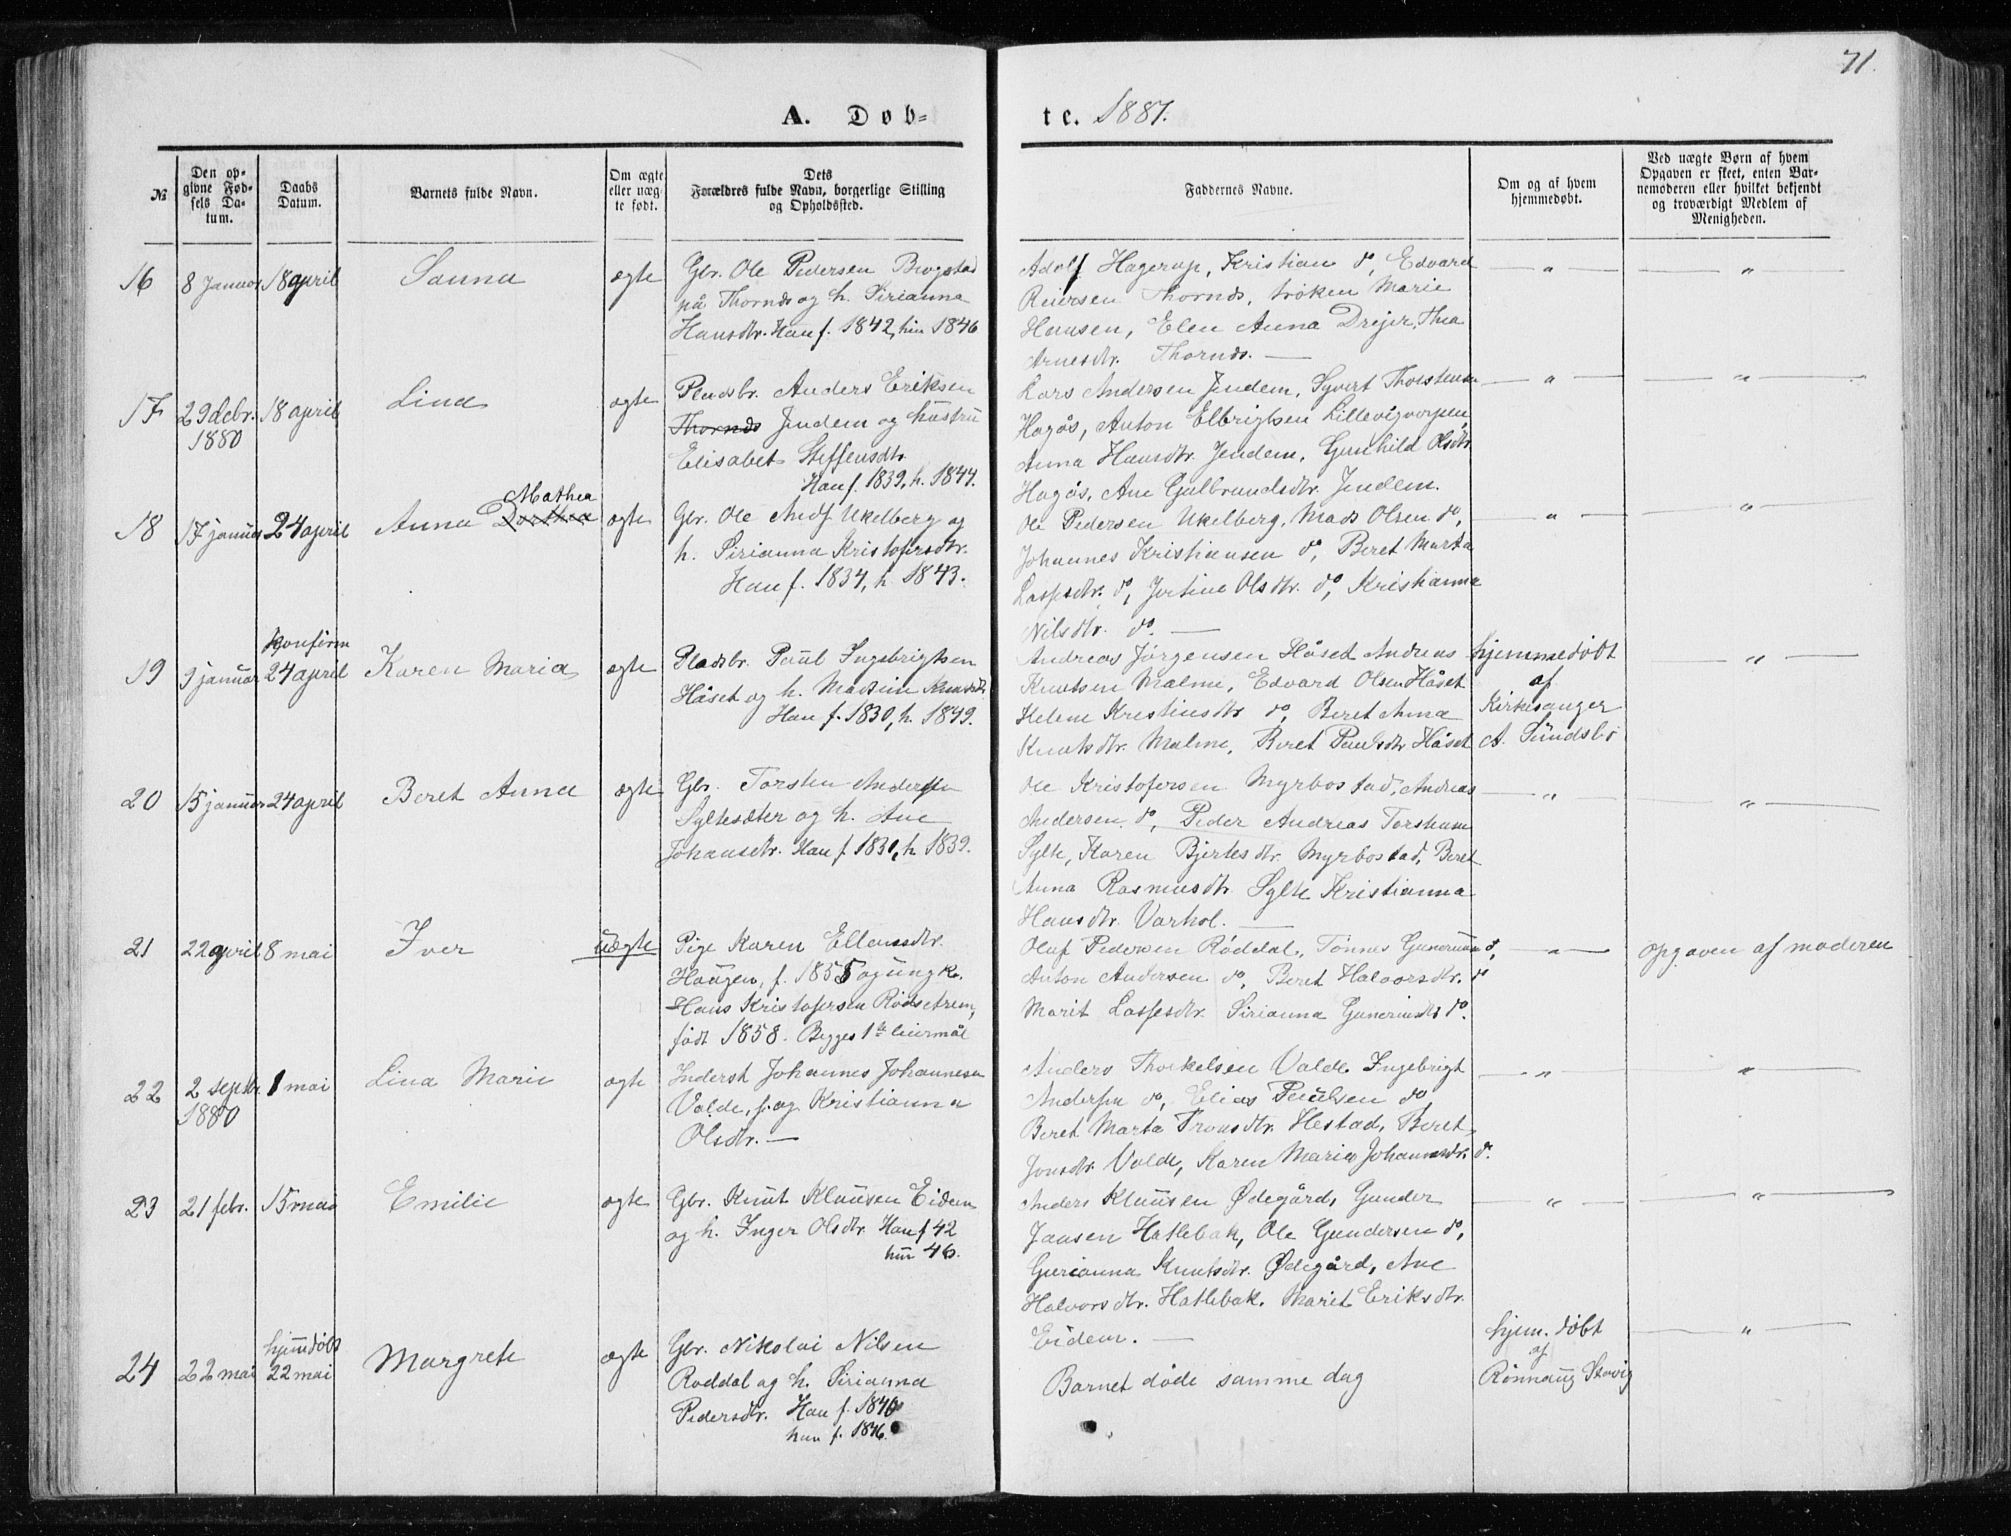 71.
A. Døb-
te. 1881.
№
Den op-
givne Fød-
sels Da-
tum.
Daabs
Datum.
Barnets fulde Navn.
Om ægte
eller uæg-
te født.
Dets
Forældres fulde Navn, borgerlige Stilling
og Opholdssted.
Faddernes Navne.
Om og af hvem
hjemmedøbt.
Ved uægte Børn af hvem
Opgaven er skeet, enten Bar-
nemoderen eller hvilket bekjendt
og troværdigt Medlem af
Menigheden.
16 8 Januar 18 april Sanna ægte
Gbr. Ole Pedersen Brogstad
på Thornds og h. Sirianna
Hansdtr. Han f. 1842, hun 1846
Adolf Hagerup, Kristian do, Edvard
Reiersen Thornds, frøken Marie
Hansen, Elen Anna Drejer, Thea
Arnesdtr. Thornds. —
— " —
— " —
17 29 debr.
1880
18 april Lina ægte
Pladsbr. Anders Eriksen
Thornds Jendem og hustru
Elisabet Steffensdtr.
Han f. 1839, h. 1844.
Lars Andersen Jendem, Syvert Thorstensen
Hagås, Anton Elbrigtsen Lillevigvorpen,
Anna Hansdtr. Jendem, Gunhild Olsdtr.
Hagås, Ane Gulbrandsdtr. Jendem.
— " —
— " —
18 17 januar 24 april Anna Dorthea
Mathea
ægte
Gbr. Ole Andr Ukelberg og
h. Sirianna Kristofersdtr.
Han f. 1834, h. 1843.
Ole Pedersen Ukelberg, Mads Olsen do,
Johannes Kristiansen do, Beret Marta
Lassesdtr. do, Jertine Olsdtr. do, Kristianna
Nilsdtr. do. —
— " —
— " —
19 9 januar
konfirm
24 april Karen Maria ægte
Pladsbr. Paul Ingebrigtsen
Håset og h. Madsine Knudsdtr
Han f. 1830, h. 1849.
Andreas Jørgensen Håset Andreas
Knutsen Malme, Edvard Olsen Håset
Helene Kristiansdtr do, Beret Anna
Knutsdtr. Malme, Beret Paulsdtr Håset
hjemmedøbt
af
Kirkesanger
A. Sundsbø
— " —
20 15 januar 24 april Beret Anna ægte
Gbr. Torsten Andersen
Syltesæter og h. Ane
Johansdtr. Han f. 1831, h 1839.
Ole Kristofersen Myrbostad, Andreas
Andersen do, Peder Andreas Torstensen
Sylte, Karen Bjertesdtr. Myrbostad, Beret
Anna Rasmusdtr. Sylte Kristianna
Hansdtr. Varhol. —
— " —
— " —
21 22 april 8 mai Iver uægte
Pige Karen Ellensdtr.
Haugen, f. 1855 og ungk.
Hans Kristofersen Rødsetrem,
født 1858. Begges 1ste leiermål
Oluf Pedersen Røddal, Tønnes Gunerius do,
Anton Andersen do, Beret Halvorsdtr. do
Marit Lassesdtr. Sirianna Guneriusdtr do.
— " —
opgaven af moderen
22 2 septbr.
1880
1 mai Lina Marie ægte
Inderst Johannes Johannesen
Valde, f. og Kristianna
Olsdtr. —
Anders Thorkelsen Valde Ingebrigt
Andersen do, Elias Paulsen do
Beret Marta Tronsdtr. Hestad, Beret
Jonsdtr. Valde, Karen Maria Johannesdtr. do.
— " —
— " —
23 21 febr. 15 mai Emilie ægte
Gbr. Knut Klausen Eidem
og h. Inger Olsdtr. Han f 42
hun 46.
Anders Klausen Ødegård, Gunder
Jansen Hatlebak, Ole Gundersen do,
Gurianna Knutsdtr. Ødegård, Ane
Halvorsdtr. Hatlebak. Marit Eriksdtr.
Eidem. —
— " —
— " —
24 22 mai
hjemdøbt
22 mai Margrete ægte
Gbr. Nikolai Nilsen
Røddal og h. Sirianna
Pedersdtr. Han f. 1840
hun f. 1846.
Barnet døde samme dag
hjem. døbt
af
Rønnaug Stavig
— " —